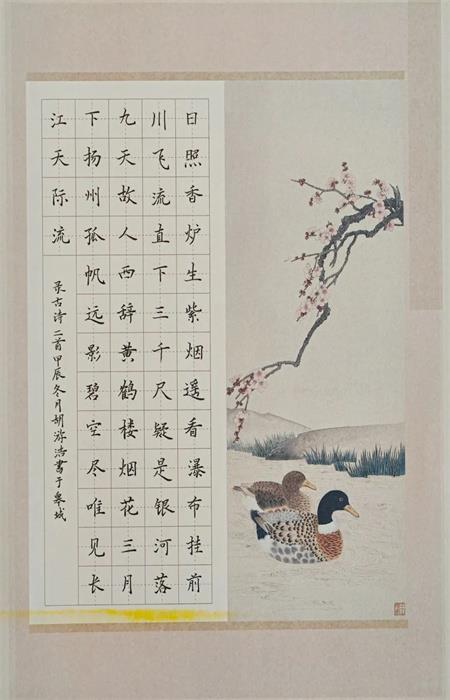 日照香炉生紫烟遥看瀑布挂前
川飞流直下三千尺疑是银河落
九天故人西辞黄鹤楼烟花三月
下扬州孤帆远影碧空尽唯见长
江天际流
录古诗二首甲辰冬月胡游浩书于皋城